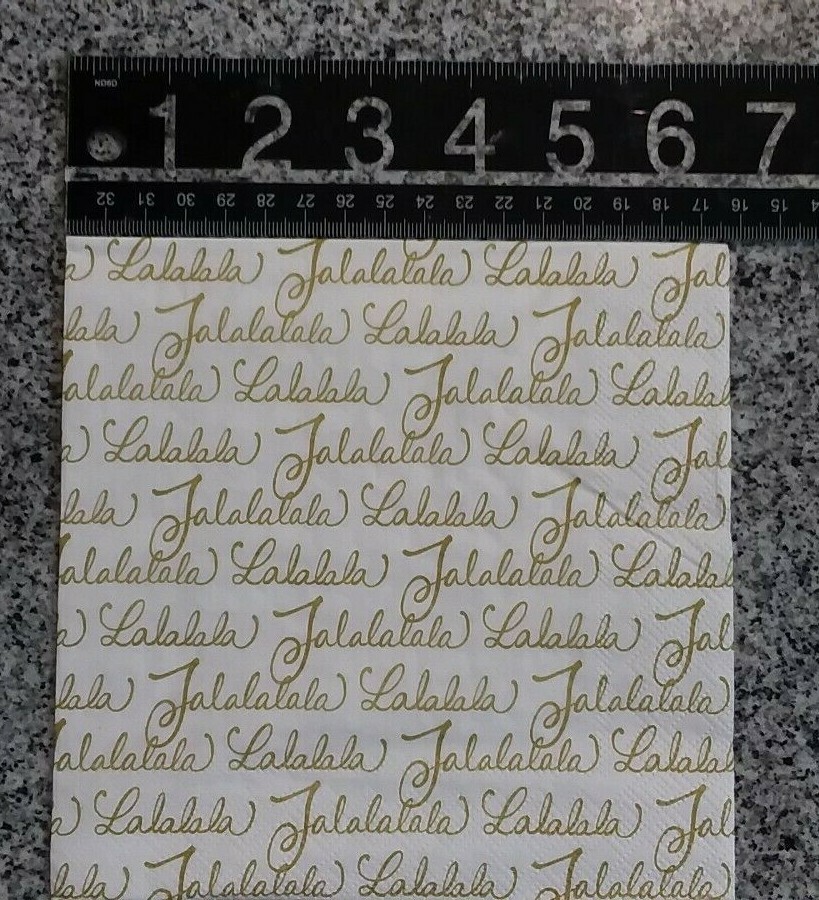 1 2 3 4 5 6 7
32 31 30 29 28 27 26 25 24 23 22 21 20 19 18 17 16 15 14
a Lalalala Jalalalala Lalalala Jal
lala Jalalalala Lalalala Jalalalala
alalalala Lalalala Jalalalala Lalalal
a Lalalala Jalalalala Lalalala Jal
lala Jalalalala Lalalala Jalalalala
alalalala Lalalala Jalalalala Lalalal
a Lalalala Jalalalala Lalalala Jal
lala Jalalalala Lalalala Jalalalala
alalalala Lalalala Jalalalala Lalalal
a Lalalala Jalalalala Lalalala Jal
lala Jalalalala Lalalala Jalalalala